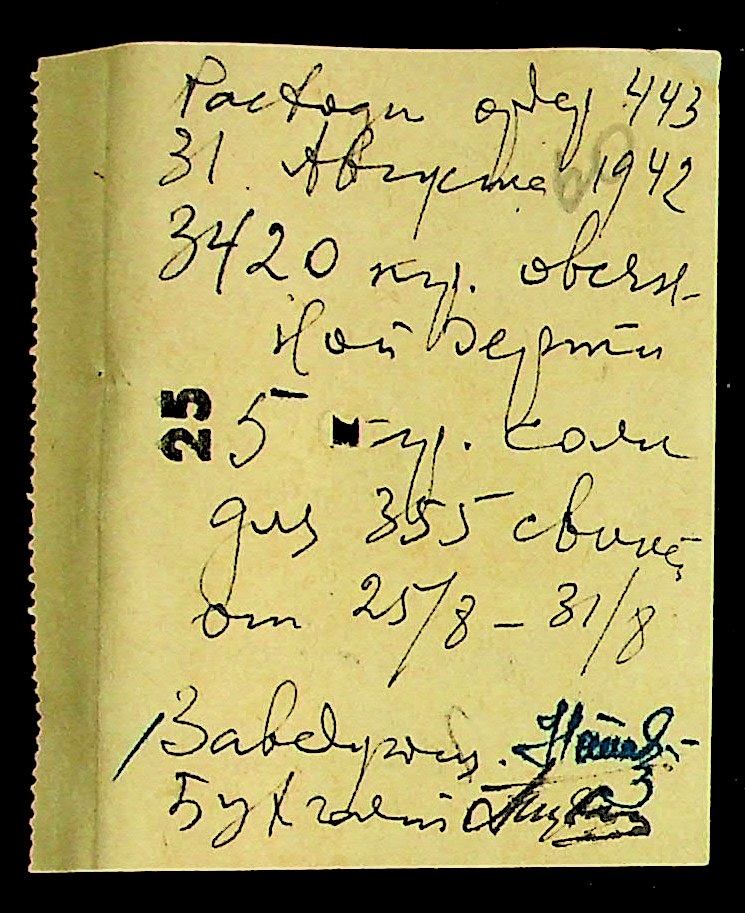 Расходн орд 443
31. Августа 1942
3420 кг. овсян-
ной дерти
25 5 кг. соли
для 355 свиней
от 25/8 – 31/8
Заведующ.
Бухгалт